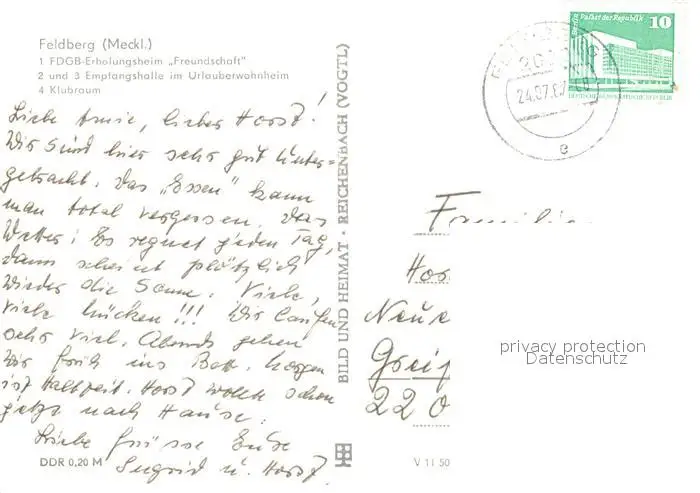 Feldberg (Meckl.)
1 FDGB-Erholungsheim „Freundschaft"
2 und 3 Empfangshalle im Urlauberwohnheim
4 Klubraum
Liebe Annie, lieber Horst!
Wir sind hier sehr gut unter=
gebracht. Das „Essen" kann
man total vergessen. Das
Wetter: Es regnet jeden Tag,
dann scheint plötzlich
wieder die Sonne. Viele,
viele Mücken!!! Wir laufen
sehr viel. Abends gehen
wir früh ins Bett. Morgen
ist Halbzeit. Horst wollte schon
jetzt nach Hause.
Liebe Grüsse Eure
Sigrid u. Horst
DDR 0,20 M
BILD UND HEIMAT · REICHENBACH (VOGTL)
V 11 50
Berlin Palast der Republik 10
DEUTSCHE DEMOKRATISCHE REPUBLIK
24.07.87
e
Familie
Hors
Neue
Greif
220
privacy protection
Datenschutz